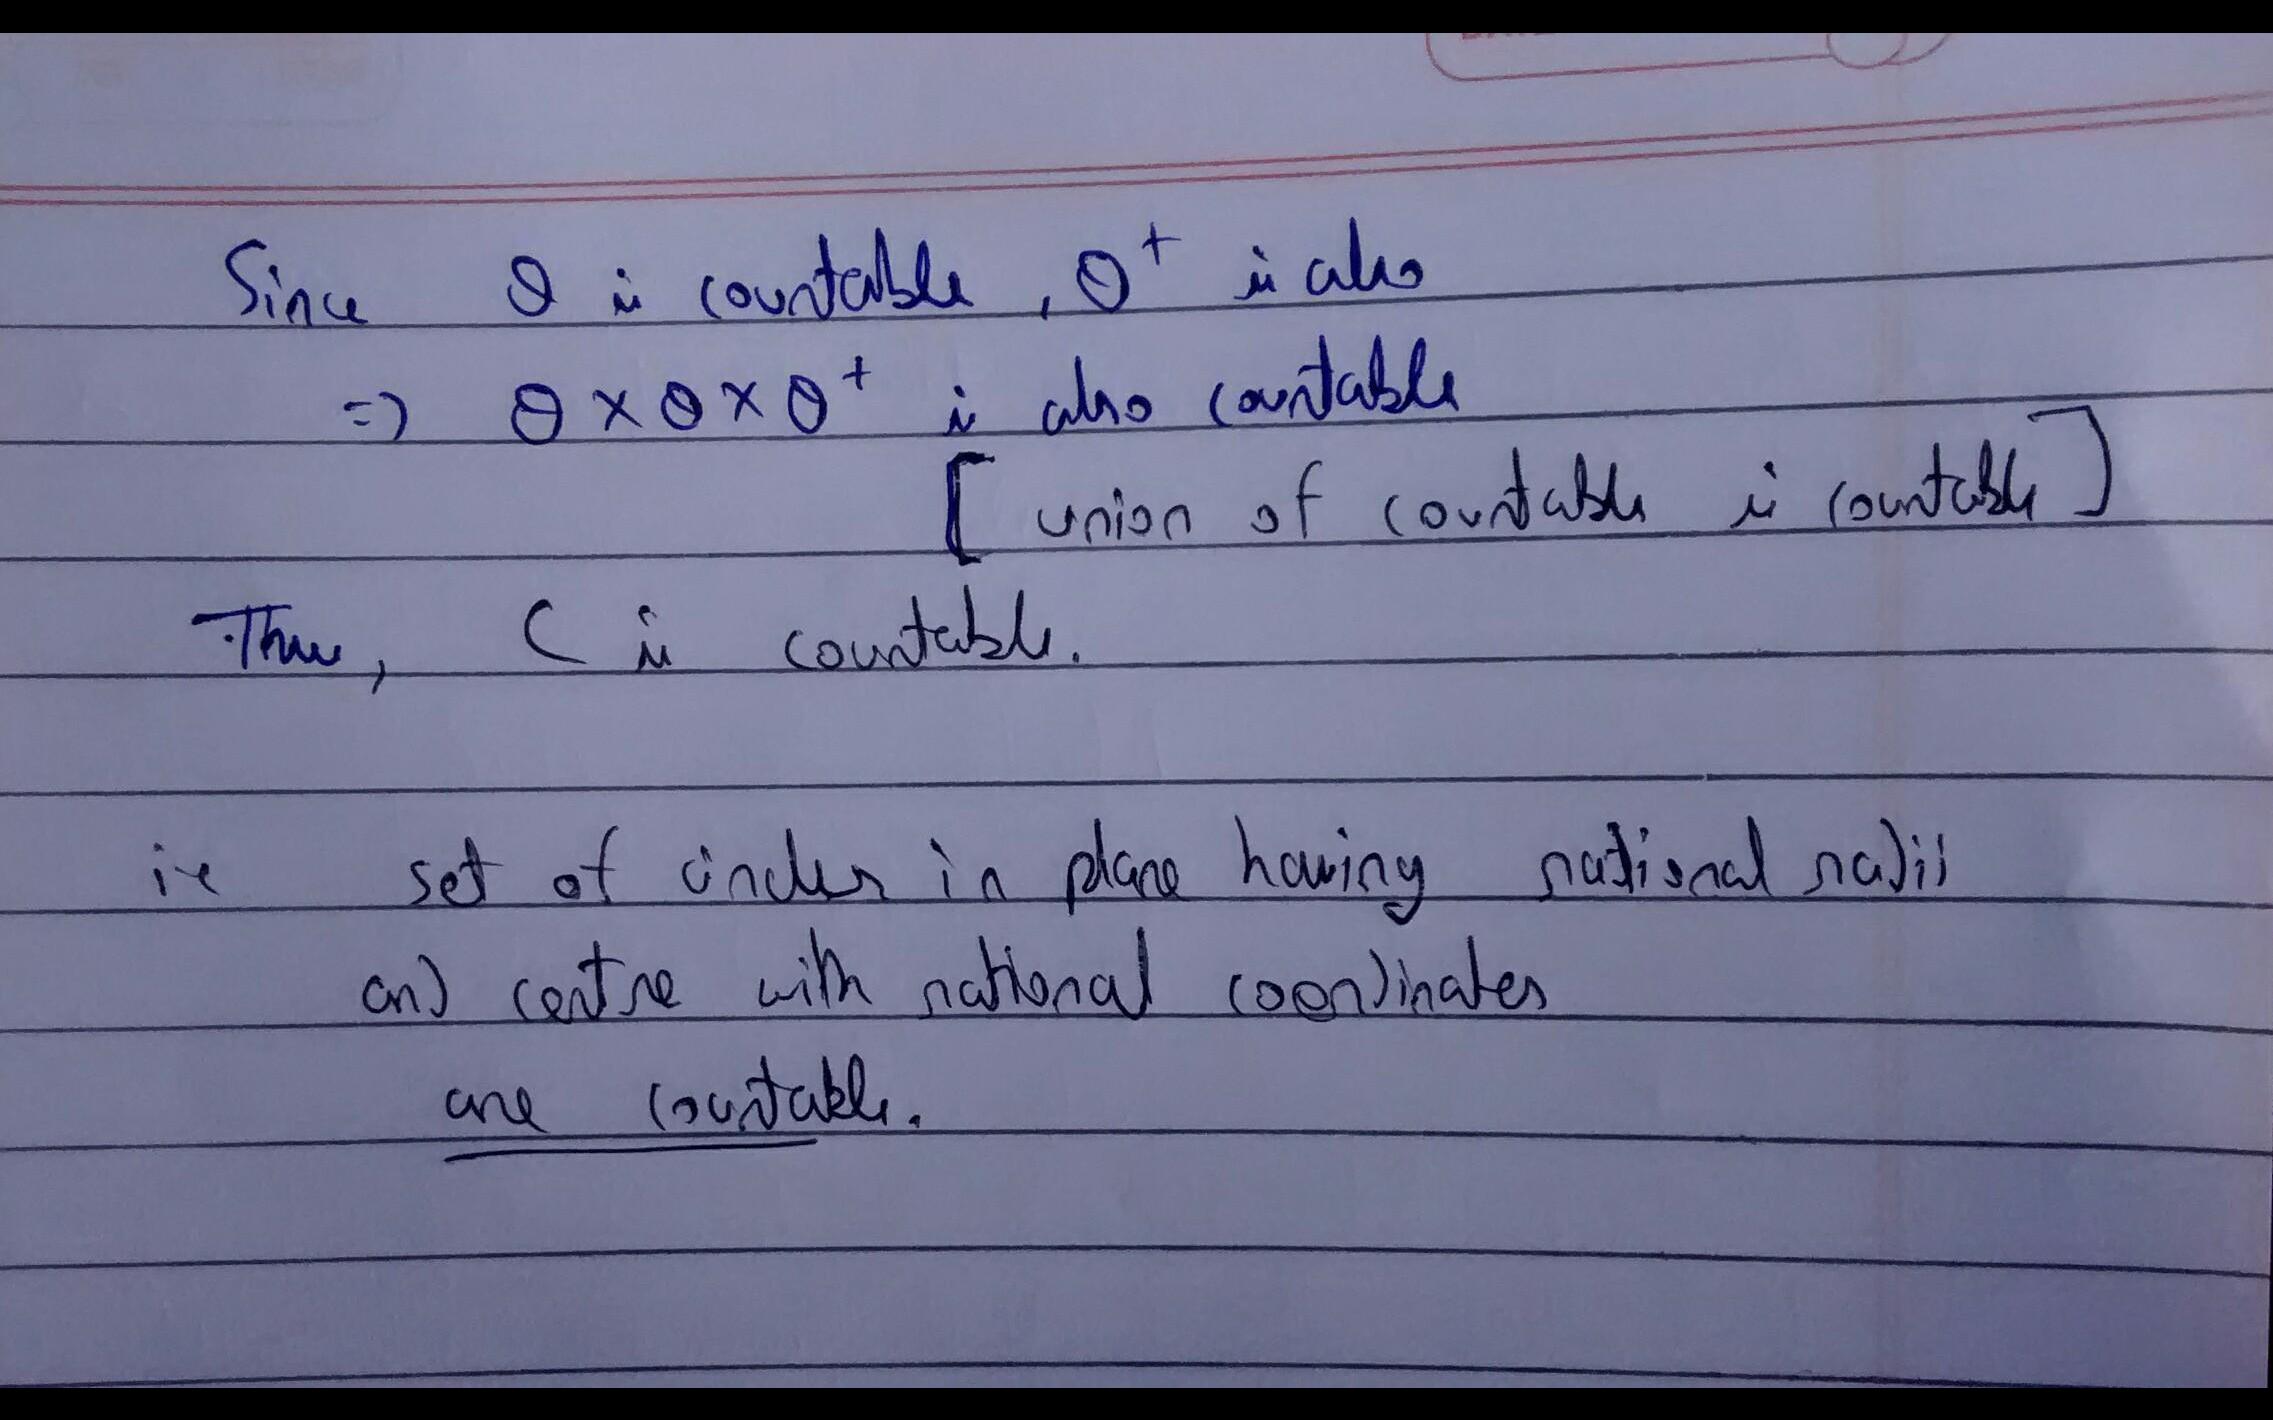 Since Q is countable, Q⁺ is also
=> Q × Q × Q⁺ is also countable
[union of countable is countable]
Thus, C is countable.
ie set of circles in plane having rational radii
and centre with rational coordinates
are countable.